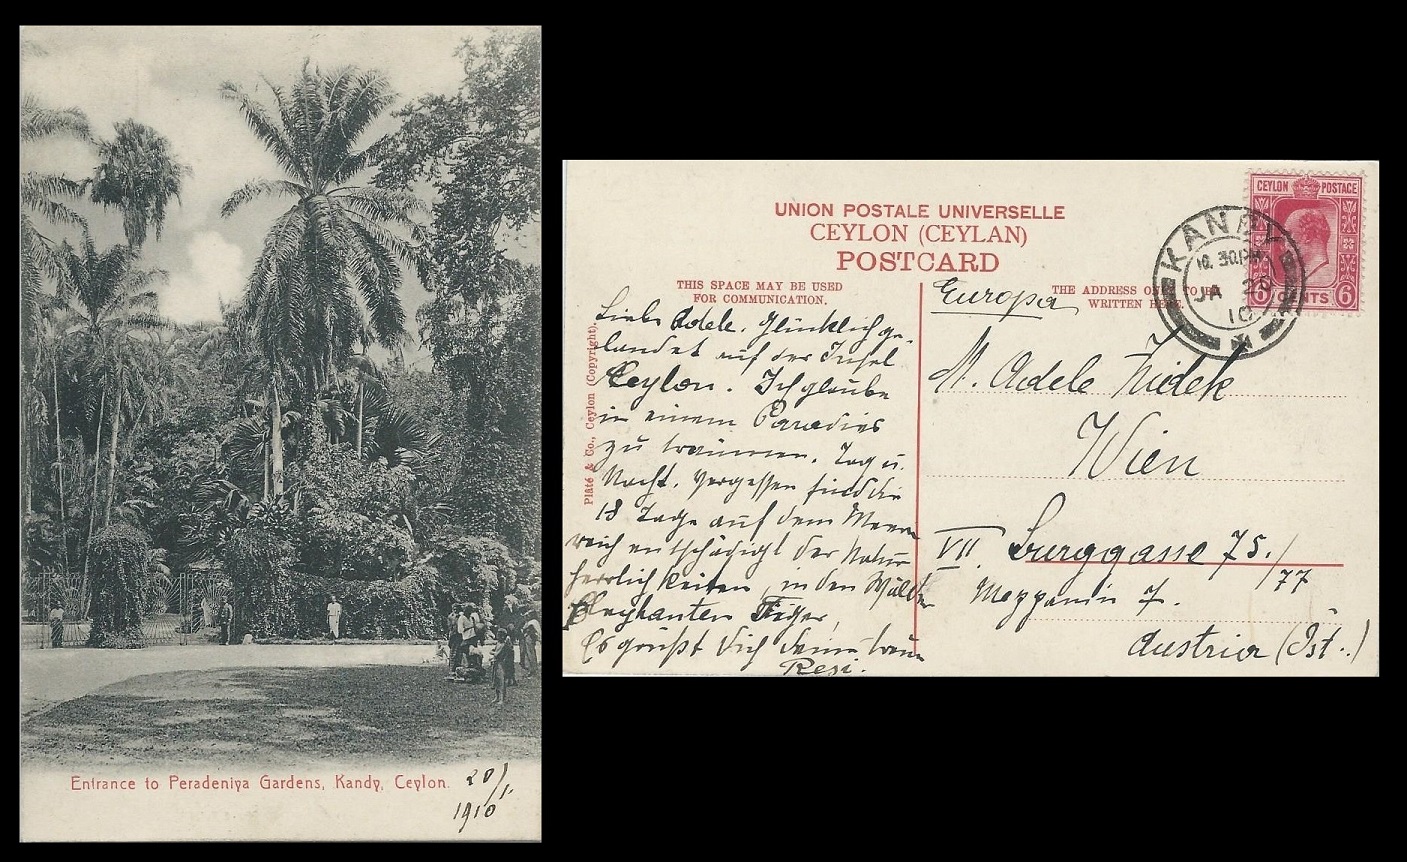 Entrance to Peradeniya Gardens, Kandy, Ceylon.
20/1.
1910
UNION POSTALE UNIVERSELLE
CEYLON (CEYLAN)
POSTCARD
THIS SPACE MAY BE USED
FOR COMMUNICATION.
THE ADDRESS ONLY TO BE
WRITTEN HERE
Plâté & Co., Ceylon (Copyright).
CEYLON POSTAGE
6 CENTS 6
KANDY
10.30.PM
JA 20
10
Liebe Adele. Glücklich ge-
landet auf der Insel
Ceylon. Ich glaube
in einem Paradies
zu träumen. Tag u.
Nacht. Vergessen sind die
18 Tage auf dem Meer
reich entschädigt der Natur
herrlichkeiten, in den Wälder
Elephanten Tiger,
Es grüßt Dich deine treue
Resi.
Europa
M. Adele
Wien
VII. Burggasse 75./
77
Mezzanin 7.
Austria (Öst..)